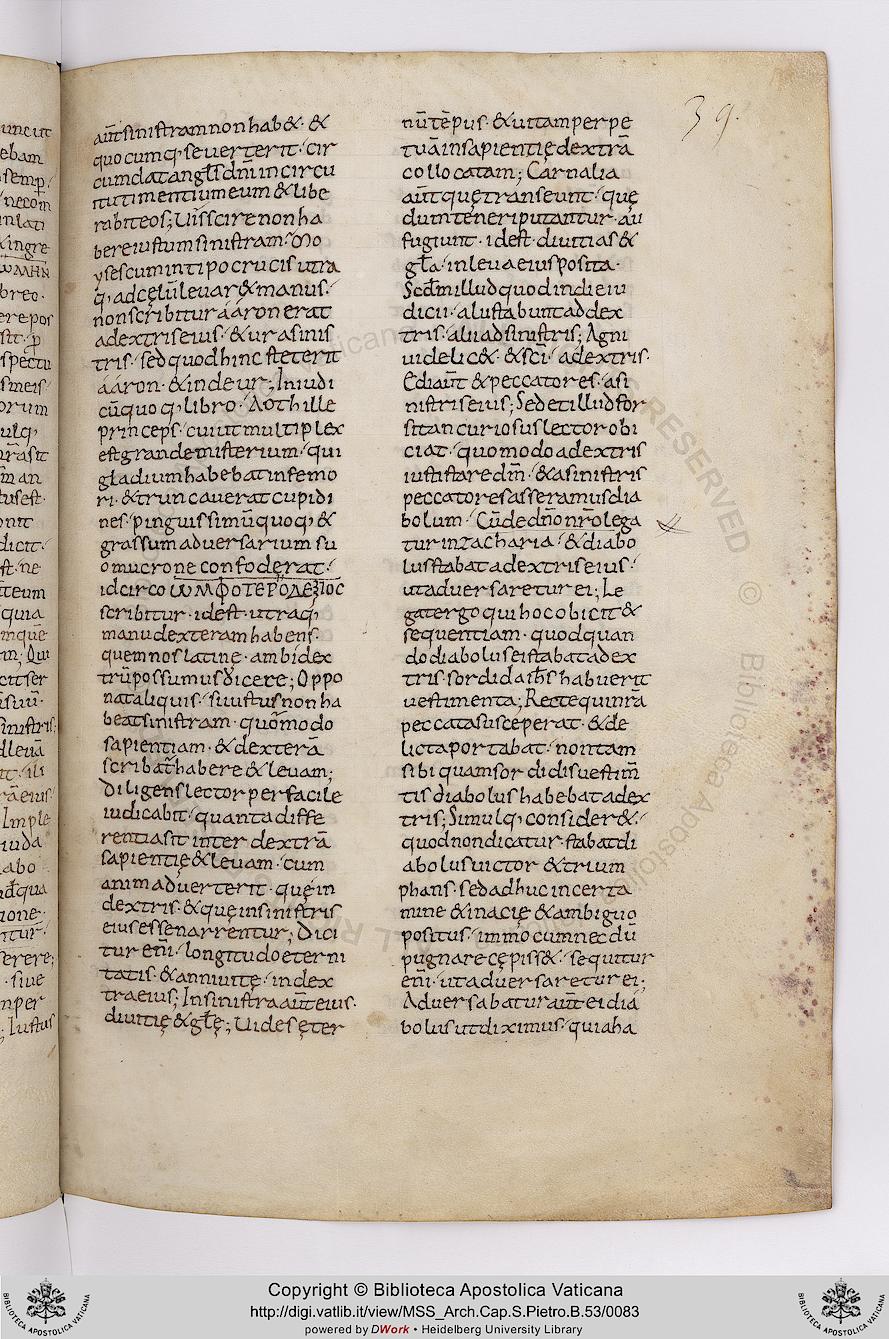 39.
aut̄ sinistram non hab&· &
quocumq; se verterit· cir
cumdat angl̄s dn̄i in circu
itu timentium eum & libe
rabit eos; Uis scire non ha
bere iustum sinistram· Mo
yses cum in tipo crucis utra
q; ad cęlū levar& manus·
non scribitur áaron erat
a dextris eius· & ur a sinis
tris· sed quod hinc steterit
áaron· & inde ur; In iudi
cū quoq; libro· Aoth ille
princeps· cui ut multiplex
est grande misterium· qui
gladium habebat in femo
ri· & truncaverat cupidi
nes· pinguissimū quoq; &
grassum adversarium su
o mucrone confoderat·
idcirco ѠΜΦΟΤΕΡΟΔΕΞΙΟC
scribitur· id est· utraq;
manu dexteram habens·
quem nos latine· ambidex
trū possumus dicere; Oppo
nat aliquis· si iustus non ha
beat sinistram· quōmodo
sapientiam· & dexterā
scribat̄ habere & levam;
Diligens lector perfacile
iudicabit· quanta diffe
rentia sit inter dextrā
sapientię & levam· cum
animadverterit· quę in
dextris· & quę in sinistris
eius esse narrentur; Dici
tur eni̅· longitudo eterni
tatis· & anni vitę· in dex
tra eius; In sinistra aut̄ eius·
divitię & glę̄; Uides ęter
nū tēpus· & vitam perpe
tuā in sapientię dextrā
collocatam; Carnalia
aut̄ quę transeunt· quę
dum teneri putantur· au
fugiunt· id est· divitias &
gl̄a· in leva eius posita·
Scd̄m illud quod in die iu
dicii· alii stabunt ad dex
tris· alii ad sinistris; Agni
videlic&· & sc̄i· a dextris·
Edi aut̄ & peccatores· a si
nistris eius; Sed et illud for
sitan curiosus lector obi
ciat· quomodo a dextris
iusti stare dn̄m· & a sinistris
peccatores asseramus dia
bolum· Cū de dn̄o nr̄o lega
tur in Zacharia· & diabo
lus stabat a dextris eius·
ut adversaretur ei; Le
gat ergo qui hoc obicit &
sequentiam· quod quan
do diabolus ei stabat a dex
tris· sordida ih̄s habuerit
vestimenta; Recte qui nr̄a
peccata susceperat· & de
licta portabat· non tam
sibi quam sordidis vestim̄
tis diabolus habebat a dex
tris; Simulq; consider&·
quod non dicatur· stabat di
abolus victor & trium
phans· sed adhuc in certa
mine & in acię & ambiguo
positus· immo cum nec dū
pugnare cępiss&· sequitur
eni̅· ut adversaretur ei;
Adversabatur aut̄ ei diá
bolus ut diximus· quia ha
Copyright © Biblioteca Apostolica Vaticana
http://digi.vatlib.it/view/MSS_Arch.Cap.S.Pietro.B.53/0083
powered by DWork • Heidelberg University Library